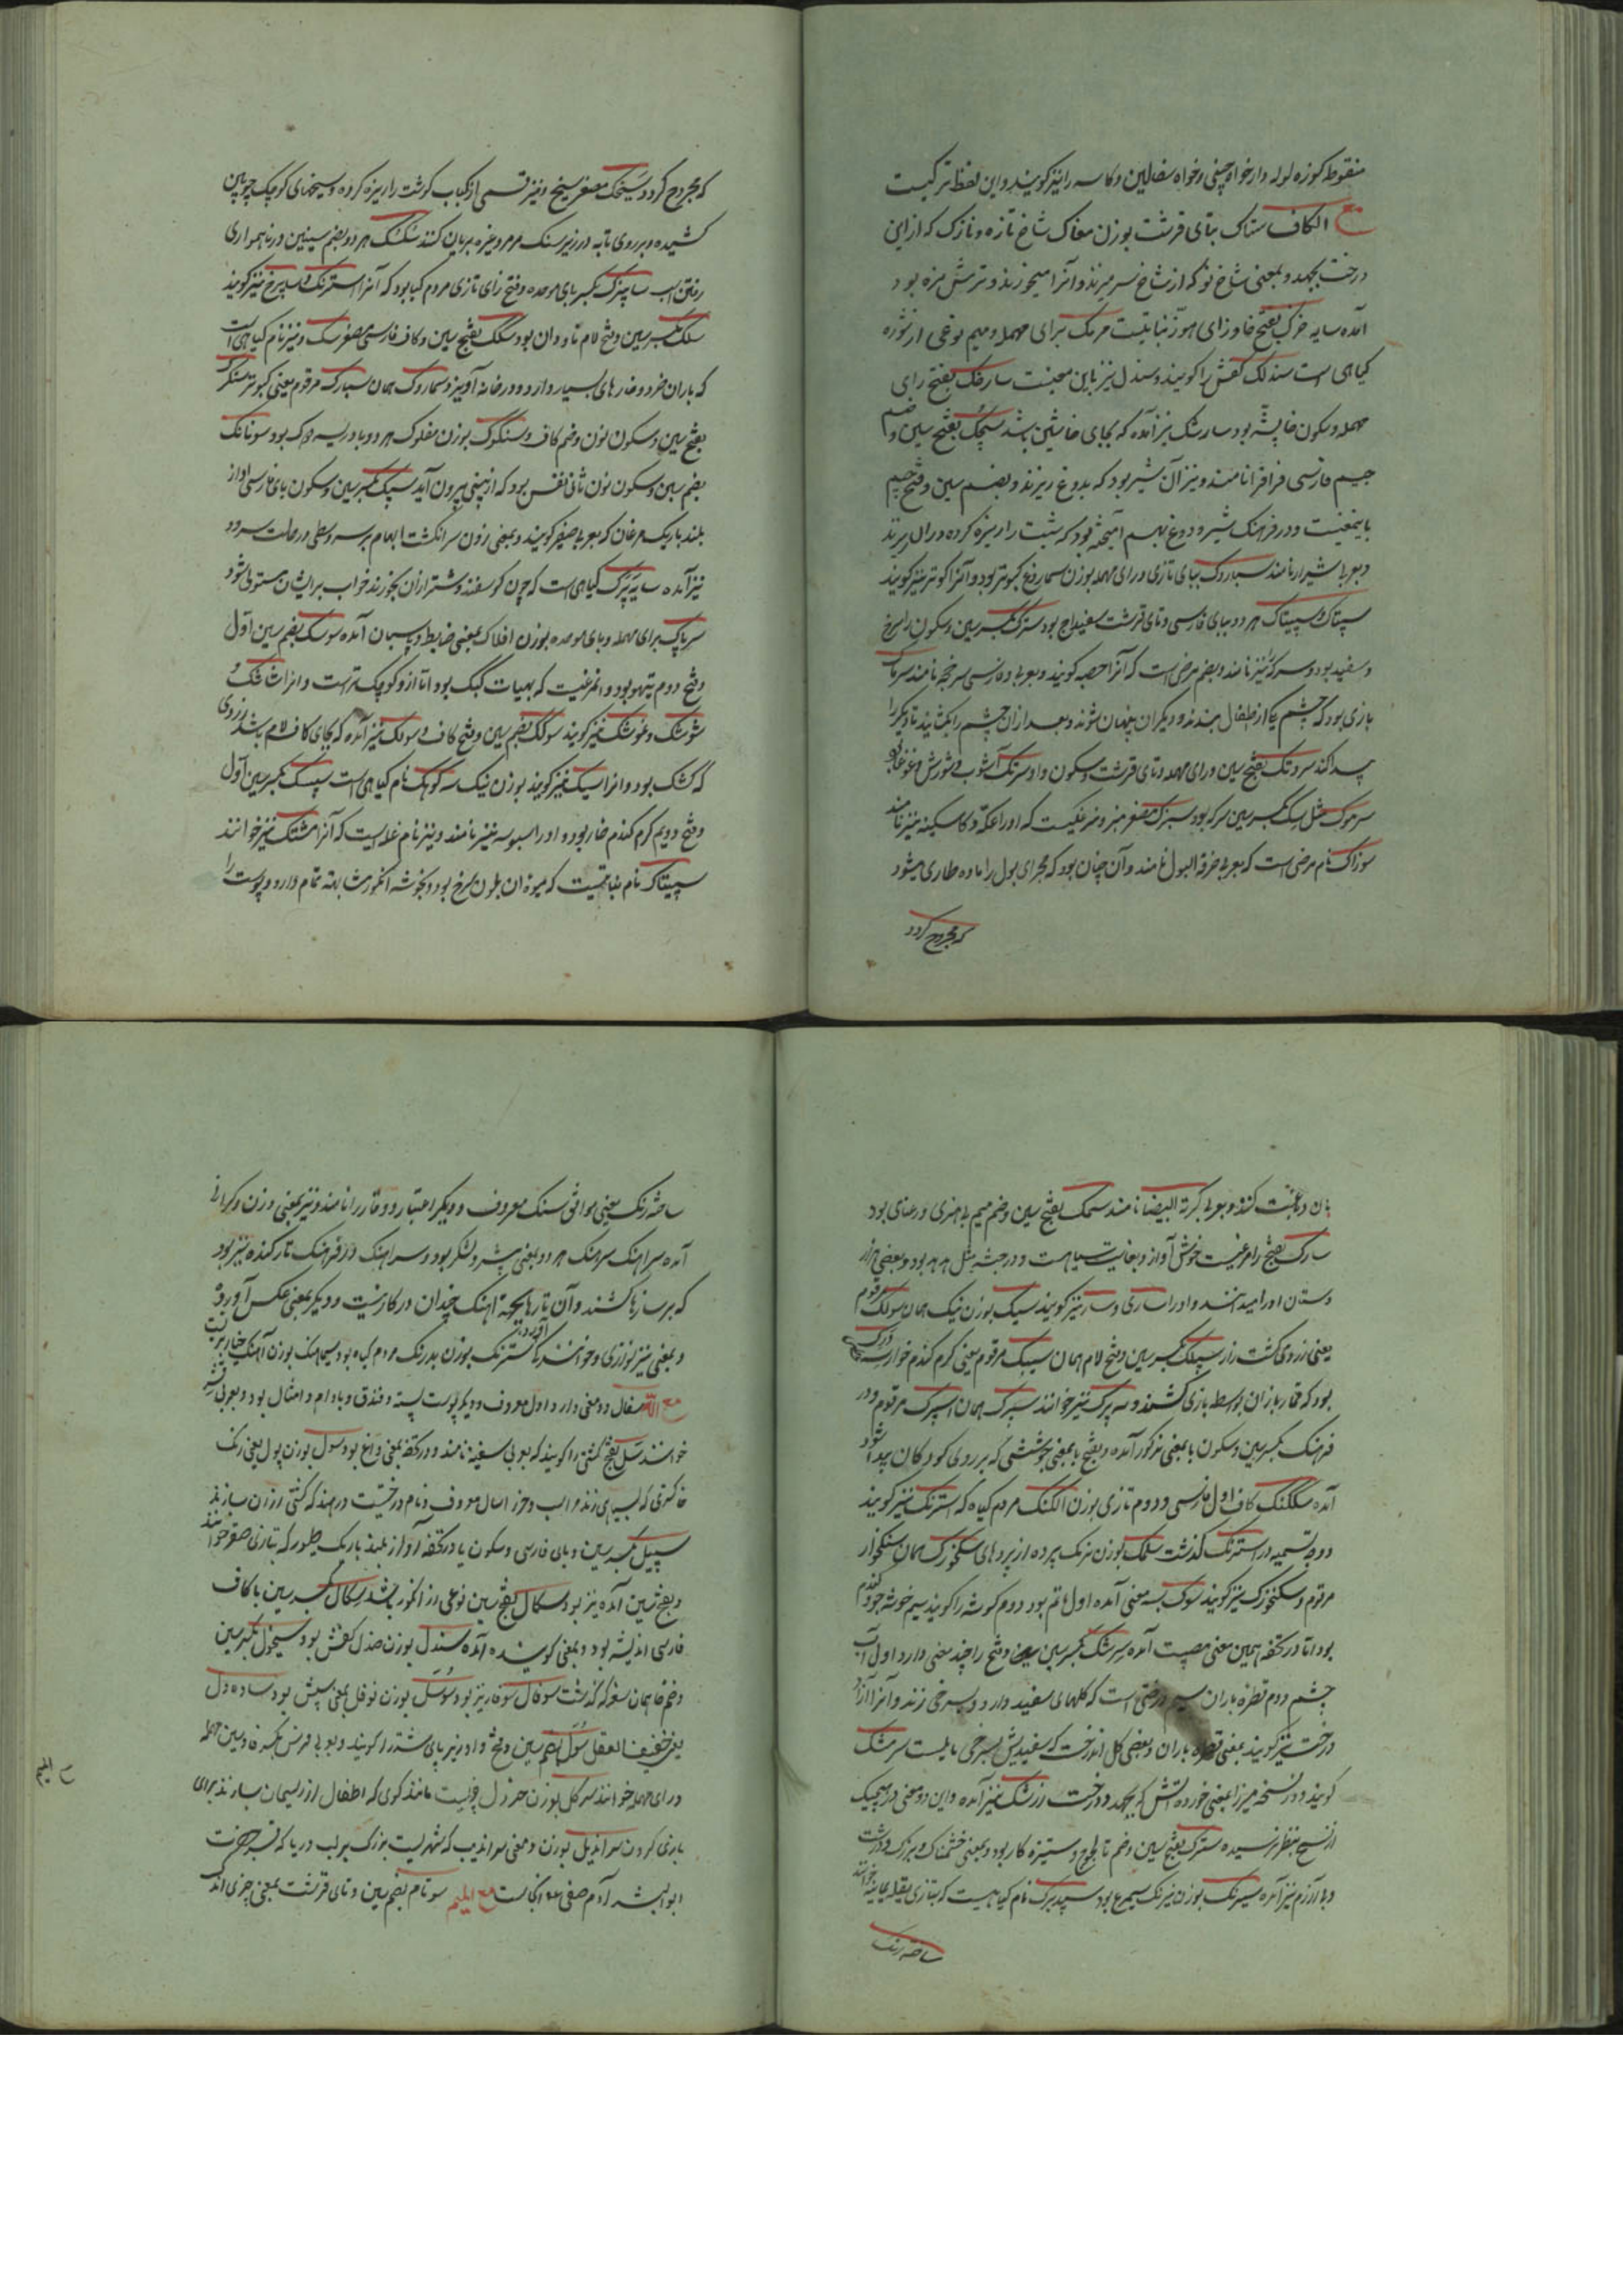 منقوطه کوزه لوله دار خواه چینی و خواه سفالین و کاسه را نیز کویند و این لفظ ترکیست
مع الکاف ستاک بتای قرشت بوزن مغاک شاخ تازه و نازک که از این
درخت بجهد و بمعنی شاخ نو که از شاخ سر میزند و آنرا میخورند و ترش مزه بود
آمده سایه خزک بفتح خا و زای هوز نباتیست مرمک برای مهمله و میم نوعی از
کیاهی است سندلک کفش را کویند و سندل نیز باین معنیست سارخک بفتح رای
مهمله و سکون خا پشه بود سارشک نیز آمده که بجای خا شین باشد سجک بفتح سین و ضم
جیم فارسی فرافر نامند و نیز آن شیر بود که بدوغ ریزند و بضم سین و فتح جیم
باینمعنیست و در فرهنک شیر و دوغ بهم آمیخته بود که شبت را ریزه کرده در آن ریزند
و بعربی شیراز نامند سباروک ببای تازی و رای مهمله بوزن سماروغ کبوتر بود و آنرا کوتر نیز کویند
سپتاک و سپیتاک هر دو ببای فارسی و تای قرشت سفیداج بود سرک بکسر سین و سکون را سرخ
و سفید بود و سرکرا نیز نامند و بضم مرضی است که آنرا حصبه کویند و بعربی و فارسی سرخجه نامند سرمامک
بازی بود که چشم یکی از اطفال ببندند و دیگران پنهان شوند و بعد از آن چشم را بکشایند تا دیکرا
پیدا کند سرونک بفتح سین و رای مهمله و تای قرشت و سکون واو سرنک آشوب و شورش و غوغا بود
سرموک مثل سک بکسر سین سرکه بود سبزک مصغر سبز و مرغکیست که او را عکه و کاسکینه نیز نامند
سوزاک نام مرضی است که بعربی حرقة البول نامند و آن چنان بود که مجرای بول را ماده طاری میشود
که مجروح کردد
که مجروح کردد و سیخک مصغر سیخ و نیز قسمی از کباب کوشت را ریزه کرده و سیخهای کوچک چوبین
کشیده و بر روی تابه در زیر سنک مرمر و غیره بریان کنند سکسک هر دو بضم سینین در ناهمواری
رفتن اسب سابیزک بکسر بای موحده و فتح زای تازی مردم کیا بود که آنرا استرنک و سابیزج نیز کویند
سلک بکسر سین و فتح لام ناودان بود سکک بفتح سین و کاف فارسی مصغر سک و نیز نام کیاهی است
که باران خرد و خارهای بسیار دارد و در خانه آویزند سماروک همان سبارک مرقوم یعنی کبوتر سنکرک
بفتح سین و سکون نون و ضم کاف و سنکوک بوزن مفلوک هر دو بادریسه دوک بود سونانک
بضم سین و سکون نون ثانی نفس بود که از بینی بیرون آید سپک بکسر سین و سکون بای فارسی آواز
بلند باریک مرغان که بعربی صفیر کویند و بمعنی زدن سر انکشت ابهام بر سر وسطی در حالت سرود
نیز آمده سایه پرک کیاهی است که چون کوسفند و شتر از آن بخورند خواب بر ایشان مستولی شود
سرپاک برای مهمله و بای موحده بوزن افلاک بمعنی ضابط و ریسمان آمده سوسک بضم سین اول
و فتح دوم تیهو بود و آنمرغیست که بهیات کبک بود اما از و کوچک تر است و انرا شک و
شوشک و غوشک نیز کویند سولک بضم سین و فتح کاف و سولک نیز آمده که بجای کاف لام باشد زردی
که کشک بود و انرا سیک نیز کویند بوزن نیک سه کوهک نام کیاهی است سپسک بکسر سین اول
و فتح دویم کرم کندم خار بود و او را سبوسه نیز نامند و نیز نام غله‌ایست که آنرا مشتک نیز خوانند
سپیتاک نام نباتیست که میوه آن بلون سرخ بود و بخوشه انکور مشابهت تمام دارد و پوست را
بان دباغت کنند و بعربی کرمة البیضا نامند سمک بفتح سین و ضم میم بی هنری و رعنای بود
سارک بفتح را مرغیست خوش آواز و بغایت سیاهست و در جثه مثل هدهد بود و بعضی هزار
دستان او را میدانند و او را ساری و سار نیز کویند سیک بوزن نیک همان سولک مرقوم
یعنی زردی کشت زار سیلک بکسر سین و فتح لام همان سیک مرقوم یعنی کرم کندم خوار
بود که قمار بازان بواسطه بازی کشند و سه پرک نیز خوانند سپرک همان اسپرک مرقوم و در
فرهنک بکسر سین و سکون با بمعنی مذکور آمده و بفتح با بمعنی جوششی که بر روی کودکان پیدا شود
آمده سکلنک کاف اول فارسی و دوم تازی بوزن الکنک مردم کیاه که استرنک نیز کویند
و وجه تسمیه در استرنک کذشت سلمک بوزن نرمک پرده از پردهای سنکخورک همان سنکخوار
مرقوم و سنکخورک نیز کویند سوک بسه معنی آمده اول ماتم بود دوم کوشه را کویند سیم خوشه جو و کندم
بود اما در تحفه بهمین معنی مصیبت آمده سرشک بکسر سین و فتح را چند معنی دارد اول آب
چشم دوم قطره باران سیم درختی است که کلهای سفید دارد و بسرخی زند و آنرا آزاد
درخت نیز کویند بمعنی قطره باران و بعضی کل اندرخت که سفیدیش بسرخی مایلست سرشک
کویند و در نسخه میرزا بمعنی خورده اتش که بجهد و درخت زرشک نیز آمده و این دو معنی در هیچیک
از نسخ بنظر نرسیده سترک بفتح سین و ضم تا لجوج و ستیزه کار بود و بمعنی خشمناک و بزرک و درشت
و بی آزرم نیز آمده سیرنک بوزن نیرنک سیمرغ بود سپیدبرک نام کیاهیست که بتازی بقله یمانیه خوانند
ساخته رنک
ساخته رنک یعنی موافق سنک معروف و دیکر اعتبار و وقار را نامند و نیز بمعنی وزن و کرانی
آمده سراهنک سرهنک هر دو بمعنی پیشرو لشکر بود و سراهنک در فرهنک تار کنده نیز بود
که بر سازها کشند و آن تارها بجهة اهنک چندان در کار نیست و دیکر بمعنی عکس آورده
و بمعنی نیز نوازی و خوانندکی آورده سترنک بوزن بدرنک مردم کیاه بود سیماهنک بوزن آهنک
مع اللام سفال دو معنی دارد اول معروف و دیکر پوست پسته و فندق و بادام و امثال بود و بعربی قشر
خوانند سل بفتح کشتی را کویند که بعربی سفینه نامند و در تحفه بمعنی داغ بود سول بوزن پول یعنی رنک
خاکستری که بسیاهی زند در اسب و خر اسال معروف و نام درختیست در هند که کشتی از آن سازند
سپیل بکسر سین و بای فارسی و سکون یا در تحفه آواز بلند باریک طیور که بتازی صفیر خوانند
و بفتح شین آمده نیز بود سکال بفتح سین نوعی از انکور باشد سکال بکسر سین با کاف
فارسی اندیشه بود و بمعنی کوینده آمده سندل بوزن صندل کفش بود سیخول بکسر سین
و ضم خا همان سغر که کذشت سوفال سوفار نیز بود سوسل بوزن نوفل بمعنی سپش بود ساده دل
یعنی خفیف العقل سول بضم سین و فتح واو نیز پای شتر را کویند و بعربی فرسن بکسر فا و سین مهمله
و رای مهمله خوانند سرکل بوزن خردل چیزیست مانند کوی که اطفال از ریسمان سازند برای
بازی کردن سراندیل بوزن و معنی سراندیب که شهریست بزرک بر لب دریا که قبر حضرت
ابوالبشر آدم صفی ع م آنجاست مع المیم سوتام بضم سین و تای قرشت بمعنی چیزی اندک